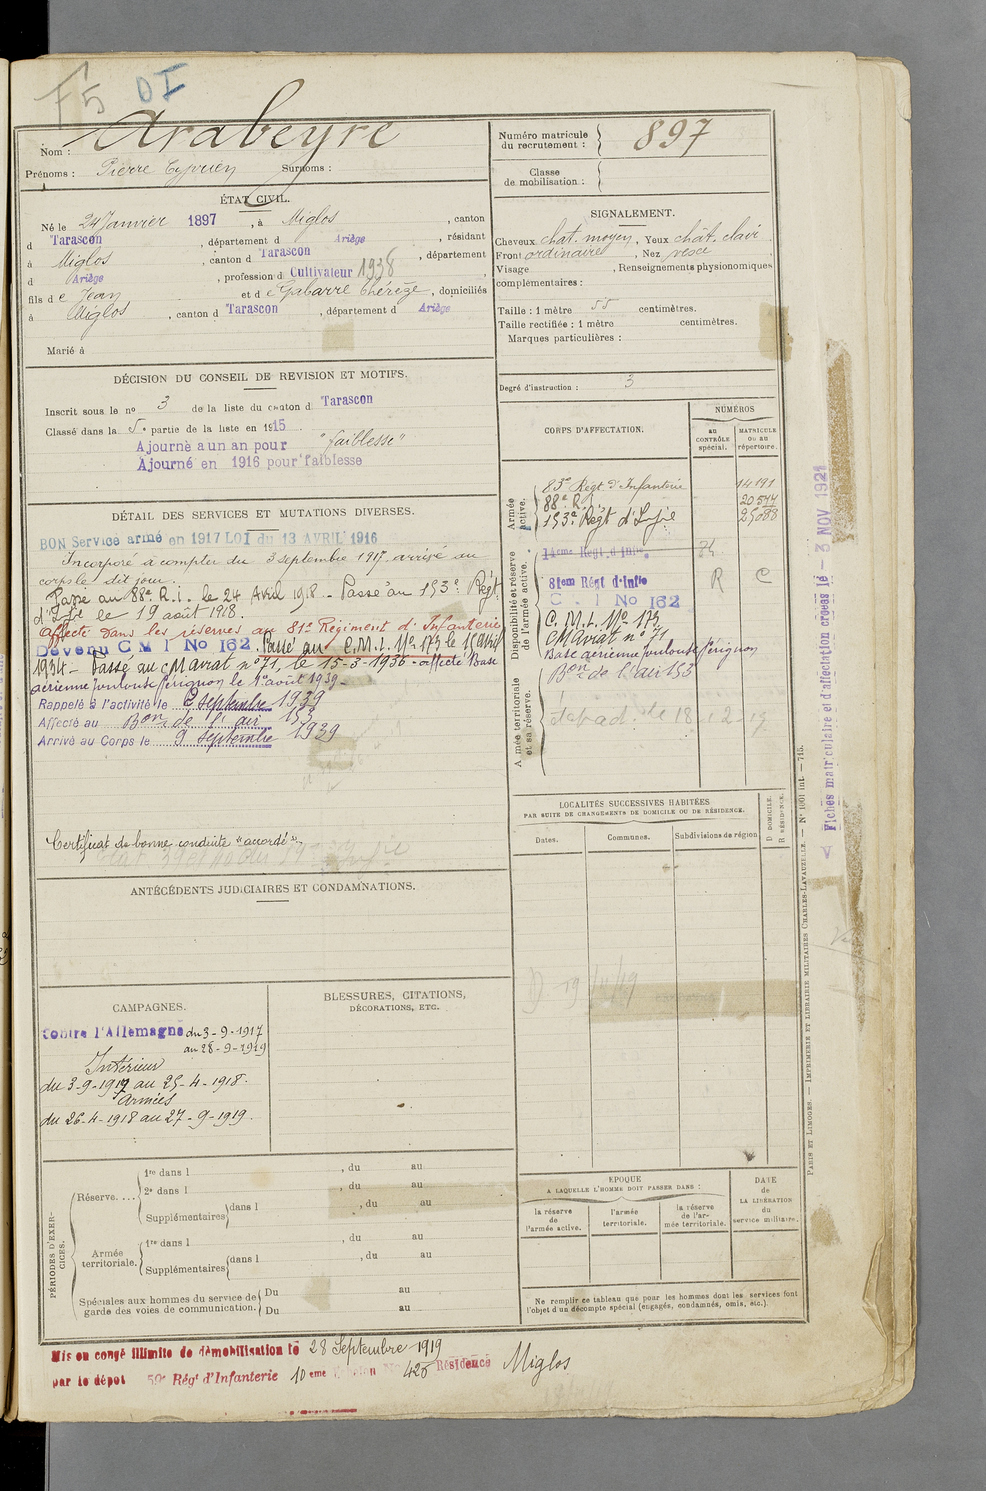 F5 DI
Nom : Arabeyre
Prénoms : Pierre Cyprien Surnoms :
Numéro matricule du recrutement : 897
Classe de mobilisation :
ÉTAT CIVIL.
Né le 24 Janvier 1897, à Miglos, canton
d Tarascon, département d Ariège, résidant
à Miglos, canton d Tarascon, département
d Ariège, profession d Cultivateur 1938
fils de Jean et de Gabarre Thérèze, domiciliés
à Miglos, canton d Tarascon, département d Ariège
Marié à
SIGNALEMENT.
Cheveux chat. moyen, Yeux chât. clair
Front ordinaire, Nez
Visage , Renseignements physionomiques
complémentaires :
Taille : 1 mètre 55 centimètres.
Taille rectifiée : 1 mètre centimètres.
Marques particulières :
Degré d'instruction : 3
DÉCISION DU CONSEIL DE REVISION ET MOTIFS.
Inscrit sous le no 3 de la liste du canton d Tarascon
Classé dans la 5e partie de la liste en 1915
Ajourné a un an pour "faiblesse"
Ajourné en 1916 pour faiblesse
DÉTAIL DES SERVICES ET MUTATIONS DIVERSES.
BON Service armé en 1917 LOI du 13 AVRIL 1916
Incorporé à compter du 3 septembre 1917. arrivé au
corps le dit jour.
Passé au 88e R.i. le 24 Avril 1918. _ Passé au 153e Régt
d'Infie le 19 août 1918.
affecté dans les réserves au 81e Régiment d'Infanterie
Devenu C M I No 162. Passé au C.M.I. No 173 le 15 avril
1934 _ Passé au CM avrat no 71, le 15-3-1936 - affecté Base
aérienne Toulouse Pérignon le 1er août 1939 _
Rappelé à l'activité le 2 septembre 1939
Affecté au Bon de l'air 153
Arrivé au Corps le 9 septembre 1939
Certificat de bonne conduite "accordé"
CORPS D'AFFECTATION.
NUMÉROS
au CONTRÔLE spécial.
MATRICULE ou au répertoire.
Armée active.
83e Régt d'Infanterie 14191
88e R.I. 20577
153e Régt d'Infie 25088
Disponibilité et réserve de l'armée active.
14eme Regt. d'Infie
81em Régt d'Infie R C
C M I No 162
C.M.I. No 173
CM avrat no 71
Base aérienne Toulouse Pérignon
Armée territoriale et sa réserve.
Bon de l'air 153
LOCALITÉS SUCCESSIVES HABITÉES
PAR SUITE DE CHANGEMENTS DE DOMICILE OU DE RÉSIDENCE.
Dates. Communes. Subdivisions de région D. DOMICILE. R. RÉSIDENCE.
ANTÉCÉDENTS JUDICIAIRES ET CONDAMNATIONS.
CAMPAGNES.
Contre l'Allemagne du 3-9-1917
au 28-9-1919
Intérieur
du 3-9-1917 au 25-4-1918.
Armées
du 26-4-1918 au 27-9-1919.
BLESSURES, CITATIONS,
DÉCORATIONS, ETC.
PÉRIODES D'EXERCICES.
Réserve....
1re dans l , du au
2e dans l , du au
Supplémentaires dans l , du au
Armée territoriale.
1re dans l , du au
Supplémentaires dans l , du au
Spéciales aux hommes du service de garde des voies de communication. Du au
Du au
EPOQUE
A LAQUELLE L'HOMME DOIT PASSER DANS :
la réserve de l'armée active. l'armée territoriale. la réserve de l'armée territoriale.
DATE de LA LIBÉRATION du service militaire.
Ne remplir ce tableau que pour les hommes dont les services font
l'objet d'un décompte spécial (engagés, condamnés, omis, etc.).
Mis en congé illimité de démobilisation le 28 Septembre 1919
par le dépot 59e Régt d'Infanterie 10eme No 426 Résidence Miglos
Fiches matriculaire et d'affectation créées le - 3 NOV 1921
PARIS ET LIMOGES. — IMPRIMERIE ET LIBRAIRIE MILITAIRES CHARLES-LAVAUZELLE. — No 1001 int. — 715.